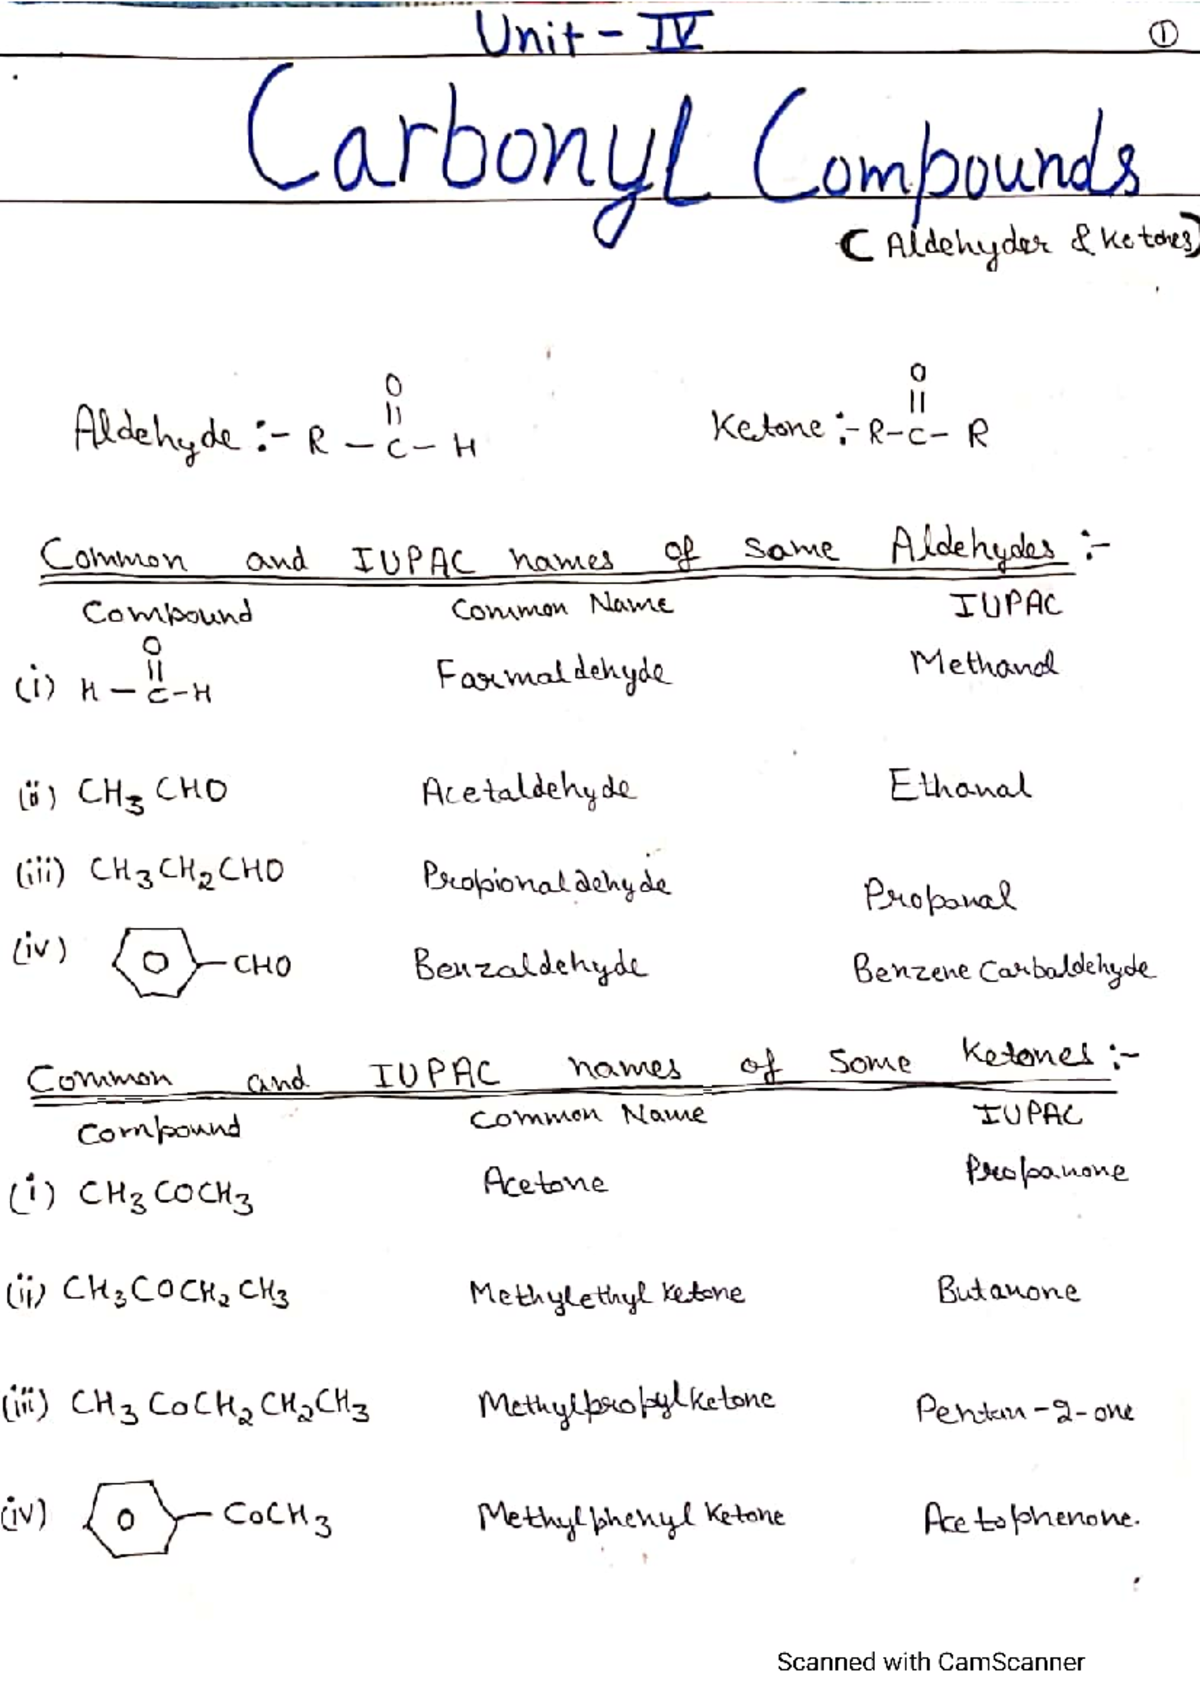 Unit - IV
①
Carbonyl Compounds
(Aldehyder & Ketones)
O
||
Aldehyde :- R - C - H
O
||
Ketone :- R - C - R
Common and IUPAC names of same Aldehydes :-
Compound Common Name IUPAC
O
||
(i) H - C - H Farmaldehyde Methanal
(ii) CH3 CHO Acetaldehyde Ethanal
(iii) CH3CH2CHO Propionaldehyde Propanal
(iv) O - CHO Benzaldehyde Benzene Carbaldehyde
Common and IUPAC names of Some Ketones :-
Compound Common Name IUPAC
(i) CH3 COCH3 Acetone Propanone
(ii) CH3COCH2 CH3 Methylethyl Ketone Butanone
(iii) CH3 COCH2 CH2CH3 Methylpropylketone Pentan-2-one
(iv) O - COCH3 Methylphenyl Ketone Acetophenone.
Scanned with CamScanner